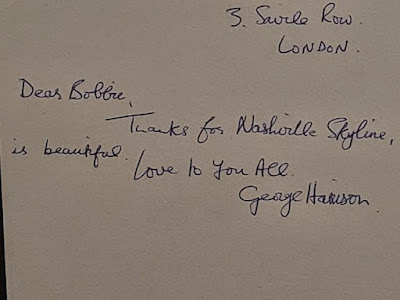 3. Savile Row.
LONDON.
Dear Bobbie,
Thanks for Nashville Skyline,
is beautiful.
Love to You All.
George Harrison.